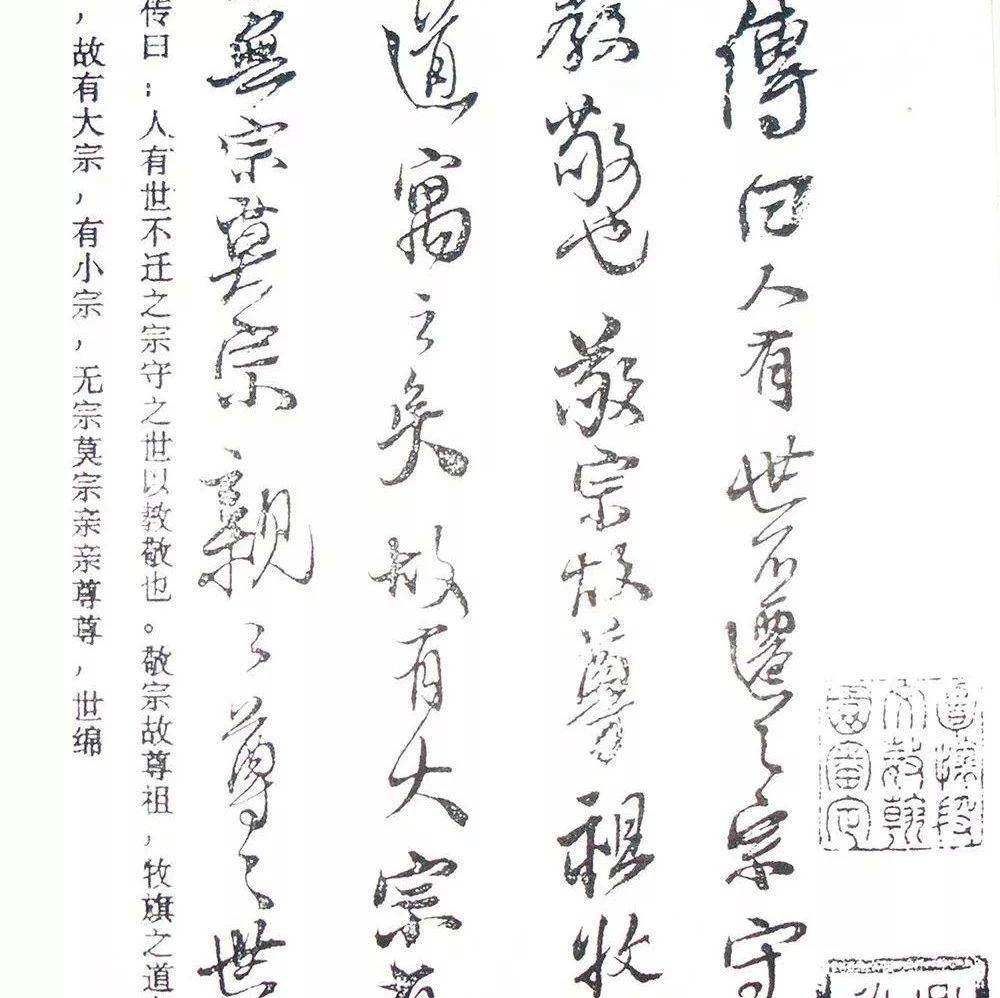 傳曰人有世不遷之宗守
教敬也敬宗故尊祖牧
道寓之矣故有大宗有
無宗莫宗親〻尊〻世
传曰：人有世不迁之宗守之世以教敬也。敬宗故尊祖，牧旗之道
，故有大宗，有小宗，无宗莫宗亲亲尊尊，世绵